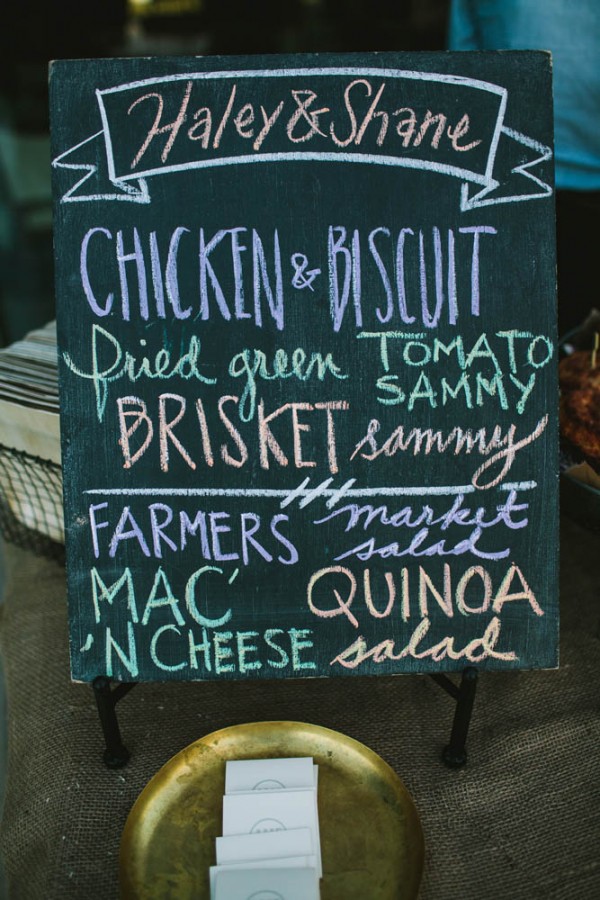 Haley & Shane
CHICKEN & BISCUIT
fried green TOMATO SAMMY
BRISKET sammy
FARMERS market salad
MAC'
'N CHEESE
QUINOA
salad